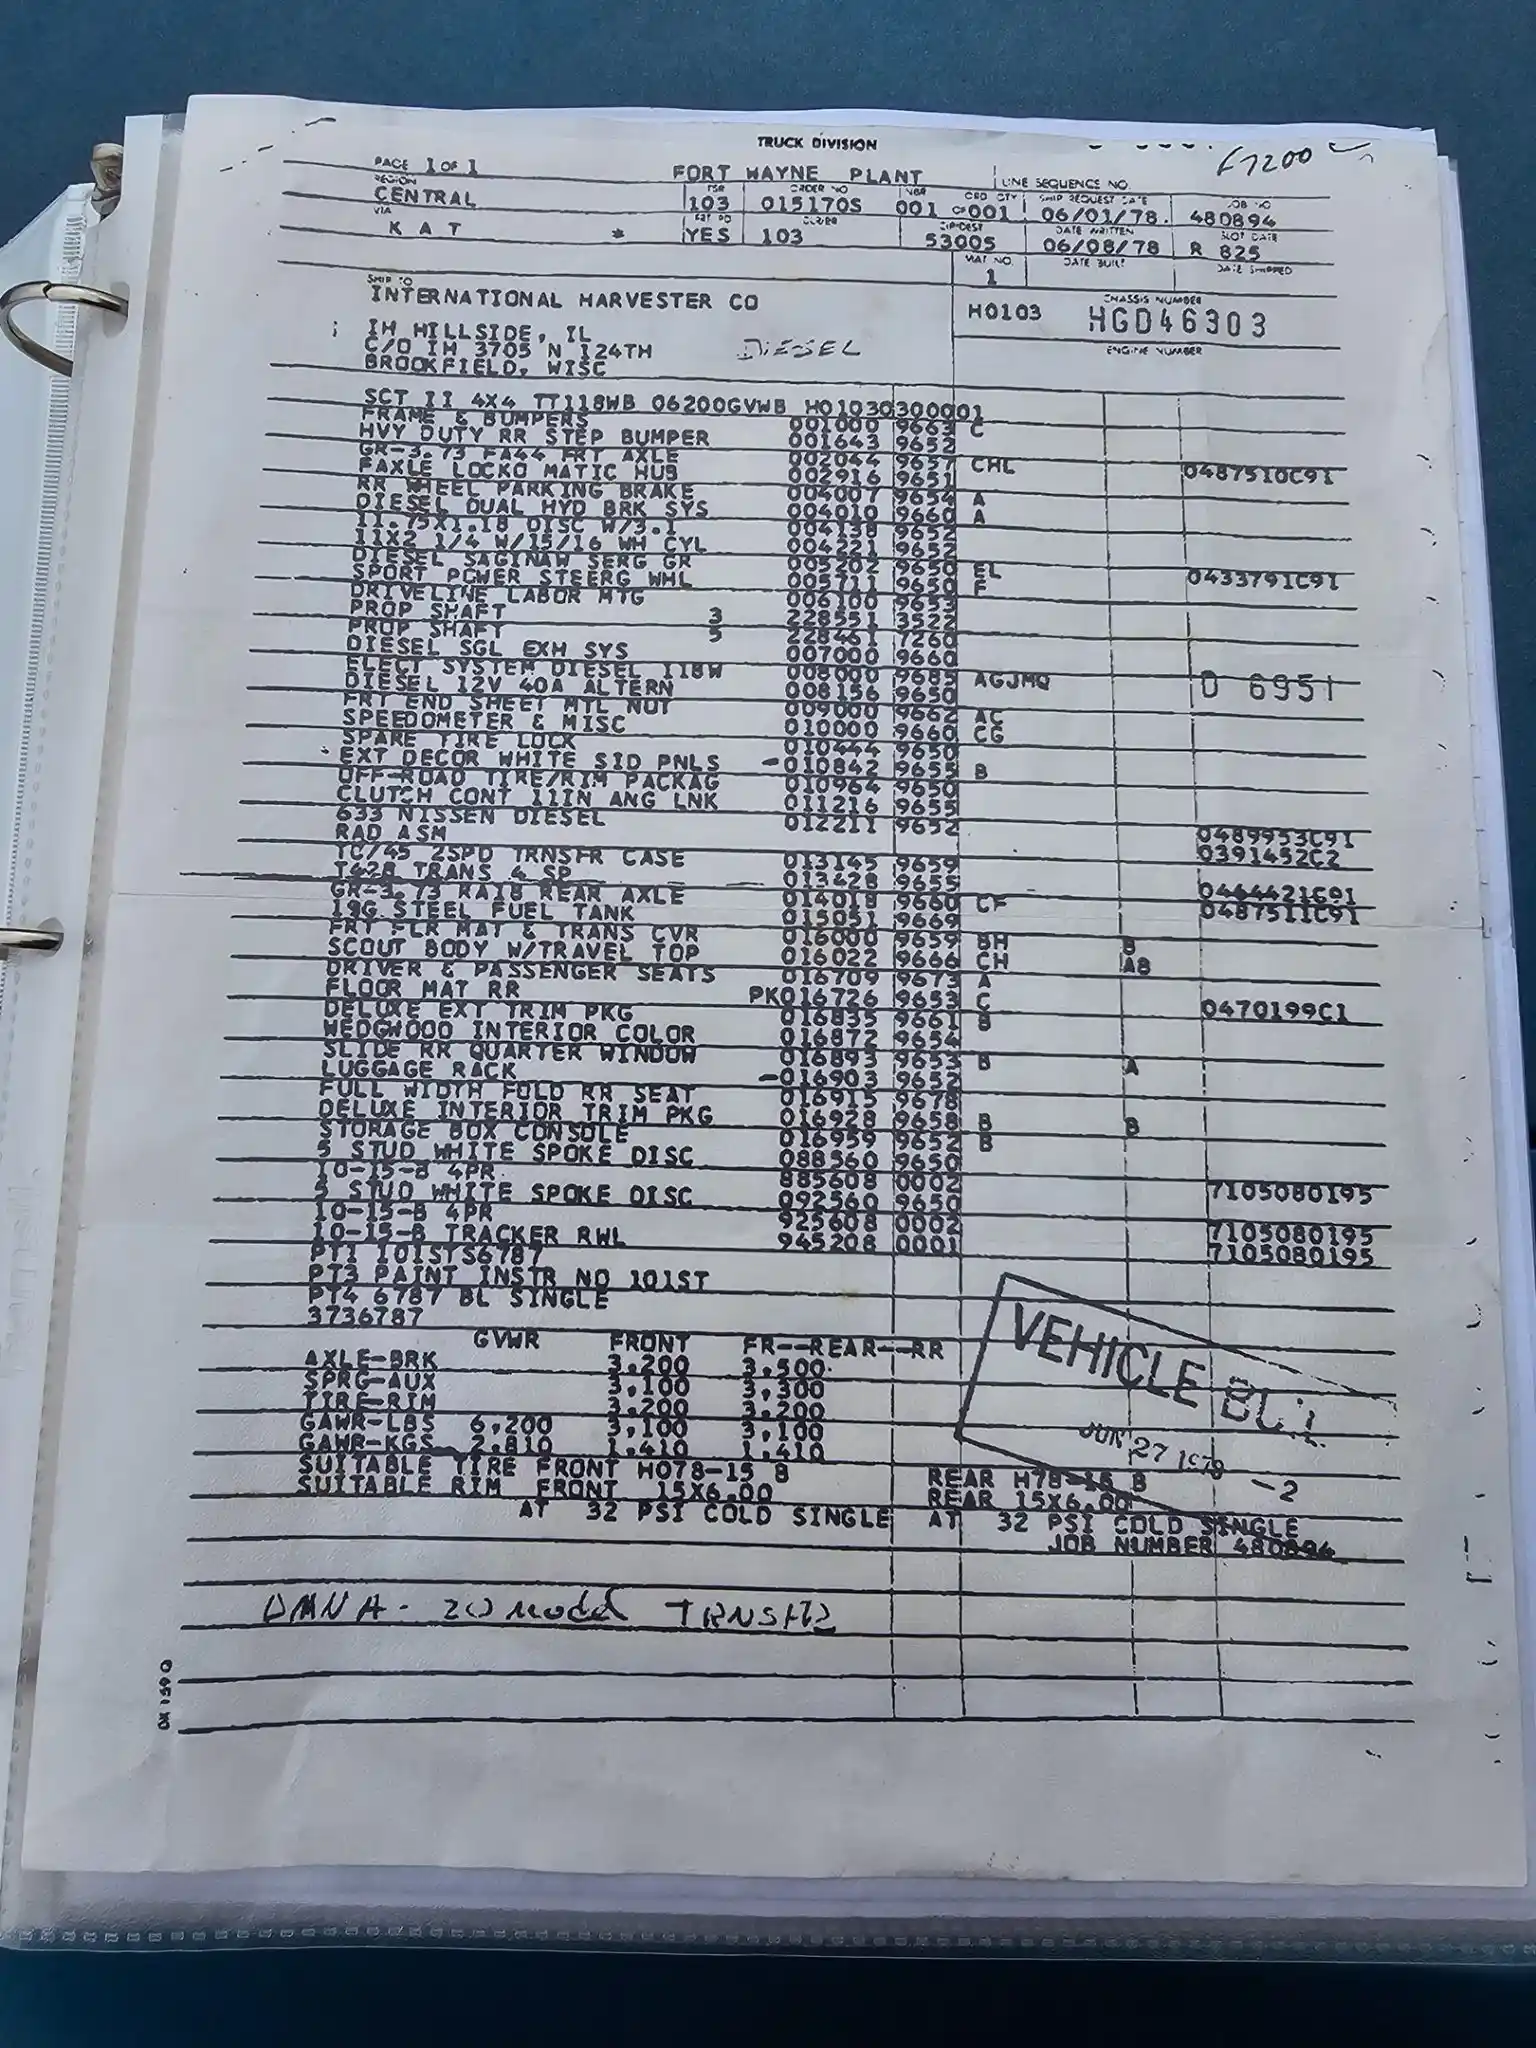 TRUCK DIVISION
PAGE 1 OF 1 FORT WAYNE PLANT LINE SEQUENCE NO.
REGION TSR ORDER NO NBR ORD QTY SHIP REQUEST DATE JOB NO
CENTRAL 103 015170S 001 OF 001 06/01/78. 480894
VIA ZIP/DEST DATE WRITTEN SLOT DATE
K A T * YES 103 53005 06/08/78 R 825
MAT NO. DATE BUILT DATE SHIPPED
1
SHIP TO CHASSIS NUMBER
INTERNATIONAL HARVESTER CO H0103 HGD46303
IH HILLSIDE, IL ENGINE NUMBER
C/O IH 3705 N 124TH DIESEL
BROOKFIELD, WISC
SCT II 4X4 TT118WB 06200GVWB H01030300001
FRAME & BUMPERS 001000 9663 C
HVY DUTY RR STEP BUMPER 001643 9652
GR-3.73 FA44 FRT AXLE 002044 9657 CHL 0487510C91
FAXLE LOCKO MATIC HUB 002916 9651
RR WHEEL PARKING BRAKE 004007 9654 A
DIESEL DUAL HYD BRK SYS 004010 9660 A
11.75X1.18 DISC W/3.1 004138 9652
11X2 1/4 W/15/16 WH CYL 004221 9652
DIESEL SAGINAW SERG GR 005202 9650 EL 0433791C91
SPORT POWER STEERG WHL 005711 9650 F
DRIVELINE LABOR MTG 006100 9653
PROP SHAFT 3 228551 3522
PROP SHAFT 5 228461 7260
DIESEL SGL EXH SYS 007000 9660
ELECT SYSTEM DIESEL 118W 008000 9685 AGJMQ D 6951
DIESEL 12V 40A ALTERN 008156 9650
FRT END SHEET MTL NUT 009000 9662 AC
SPEEDOMETER & MISC 010000 9660 CG
SPARE TIRE LOCK 010444 9650
EXT DECOR WHITE SID PNLS -010842 9655 B
OFF-ROAD TIRE/RIM PACKAG 010964 9650
CLUTCH CONT 11IN ANG LNK 011216 9655
633 NISSEN DIESEL 012211 9652
RAD ASM 0489953C91
TC/45 2SPD TRNSFR CASE 013145 9659 0391452C2
T428 TRANS 4 SP 013428 9655
GR-3.73 RA18 REAR AXLE 014018 9660 CF 0464421C91
19G STEEL FUEL TANK 015051 9669 0487511C91
FRT FLR MAT & TRANS CVR 016000 9659 BH B
SCOUT BODY W/TRAVEL TOP 016022 9666 CH AB
DRIVER & PASSENGER SEATS 016709 9673 A
FLOOR MAT RR PK016726 9653 C 0470199C1
DELUXE EXT TRIM PKG 016835 9661 B
WEDGWOOD INTERIOR COLOR 016872 9654
SLIDE RR QUARTER WINDOW 016893 9653 B A
LUGGAGE RACK -016903 9652
FULL WIDTH FOLD RR SEAT 016915 9678
DELUXE INTERIOR TRIM PKG 016928 9658 B B
STORAGE BOX CONSOLE 016959 9652 B
5 STUD WHITE SPOKE DISC 088560 9650
10-15-B 4PR 885608 0002 7105080195
5 STUD WHITE SPOKE DISC 092560 9650
10-15-B 4PR 925608 0002 7105080195
10-15-B TRACKER RWL 945208 0001 7105080195
PT1 101STS6787
PT3 PAINT INSTR NO 101ST
PT4 6787 BL SINGLE
3736787
GVWR FRONT FR--REAR--RR
AXLE-BRK 3,200 3,500
SPRG-AUX 3,100 3,300
TIRE-RIM 3,200 3,200
GAWR-LBS 6,200 3,100 3,100
GAWR-KGS 2,810 1,410 1,410
VEHICLE
JUN 27 1978
SUITABLE TIRE FRONT H078-15 B REAR H78-15 B -2
SUITABLE RIM FRONT 15X6.00 REAR 15X6.00
AT 32 PSI COLD SINGLE AT 32 PSI COLD SINGLE
JOB NUMBER 480894
DANA - 20 Model